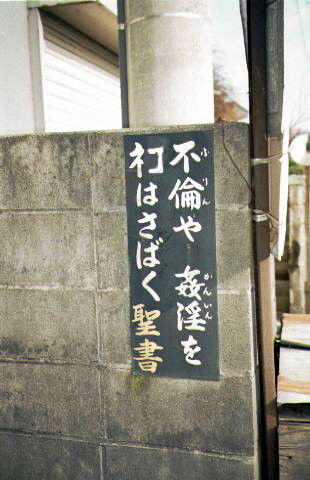 ふりん かんいん
不倫や 姦淫を
ネコはさばく 聖書